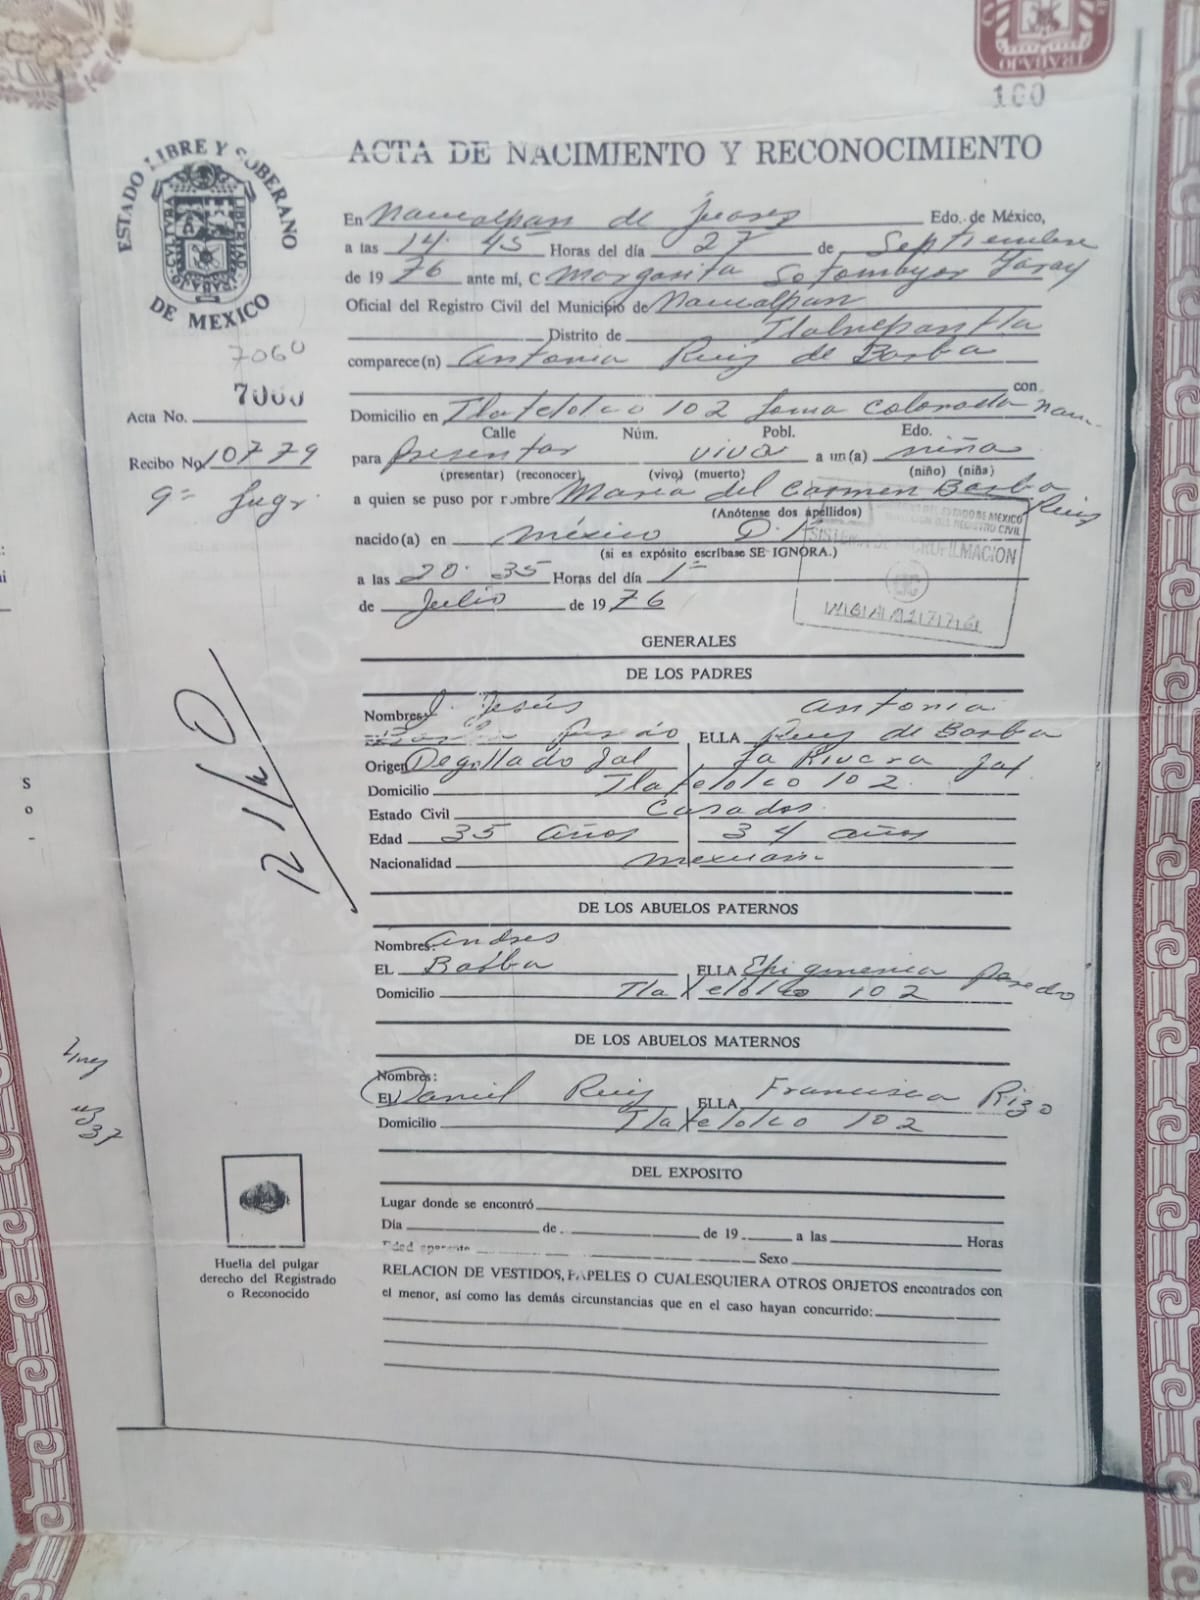 TRABAJO
100
ESTADO LIBRE Y SOBERANO
DE MEXICO
ACTA DE NACIMIENTO Y RECONOCIMIENTO
En Naucalpan de Juarez Edo. de México,
a las 14. 45 Horas del día 27 de Septiembre
de 1976 ante mí, C Margarita Sotomayor Garay
Oficial del Registro Civil del Municipio de Naucalpan
Distrito de Tlalnepantla
7060
comparece(n) Antonia Ruiz de Barba
7060
con
Acta No.
Domicilio en Tlatelolco 102 Loma Colorada Nau-
Calle Núm. Pobl. Edo.
Recibo No 10779
para Presentar viva a un(a) niña
(presentar) (reconocer) (vivo) (muerto) (niño) (niña)
a quien se puso por nombre Maria del Carmen Barba Ruiz
(Anótense dos apellidos)
nacido(a) en México D.F.
(si es expósito escríbase SE IGNORA.)
DEL ESTADO DE MEXICO
DEL REGISTRO CIVIL
SISTEMA DE MICROFILMACION
a las 20. 35 Horas del día 1º
de Julio de 1976
GENERALES
DE LOS PADRES
Nombres: J. Jesús Antonia
ELLA Ruiz de Barba
Origen Degollado Jal La Rivera Jal
Domicilio Tlatelolco 102
Estado Civil Casados
Edad 35 años 34 años
Nacionalidad mexicana
DE LOS ABUELOS PATERNOS
Nombres: Andres
EL Barba ELLA Epigmenia
Domicilio Tlatelolco 102
DE LOS ABUELOS MATERNOS
Nombres:
EL Daniel Ruiz ELLA Francisca Rizo
Domicilio Tlatelolco 102
DEL EXPOSITO
Lugar donde se encontró
Día de de 19 a las Horas
Edad aparente Sexo
Huella del pulgar
derecho del Registrado
o Reconocido
RELACION DE VESTIDOS, PAPELES O CUALESQUIERA OTROS OBJETOS encontrados con
el menor, así como las demás circunstancias que en el caso hayan concurrido: